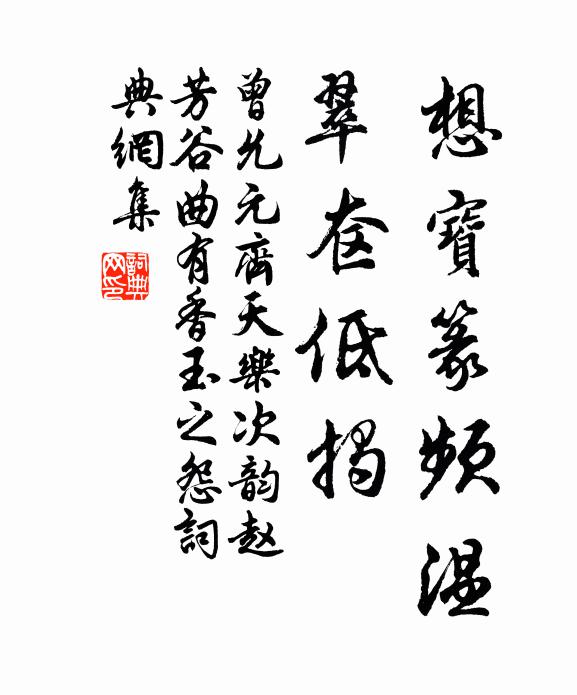 想寶篆頻温
翠奁低揭
曾允元齊天樂次韵赵
芳谷曲有香玉之怨詞
典網集
詞典网印